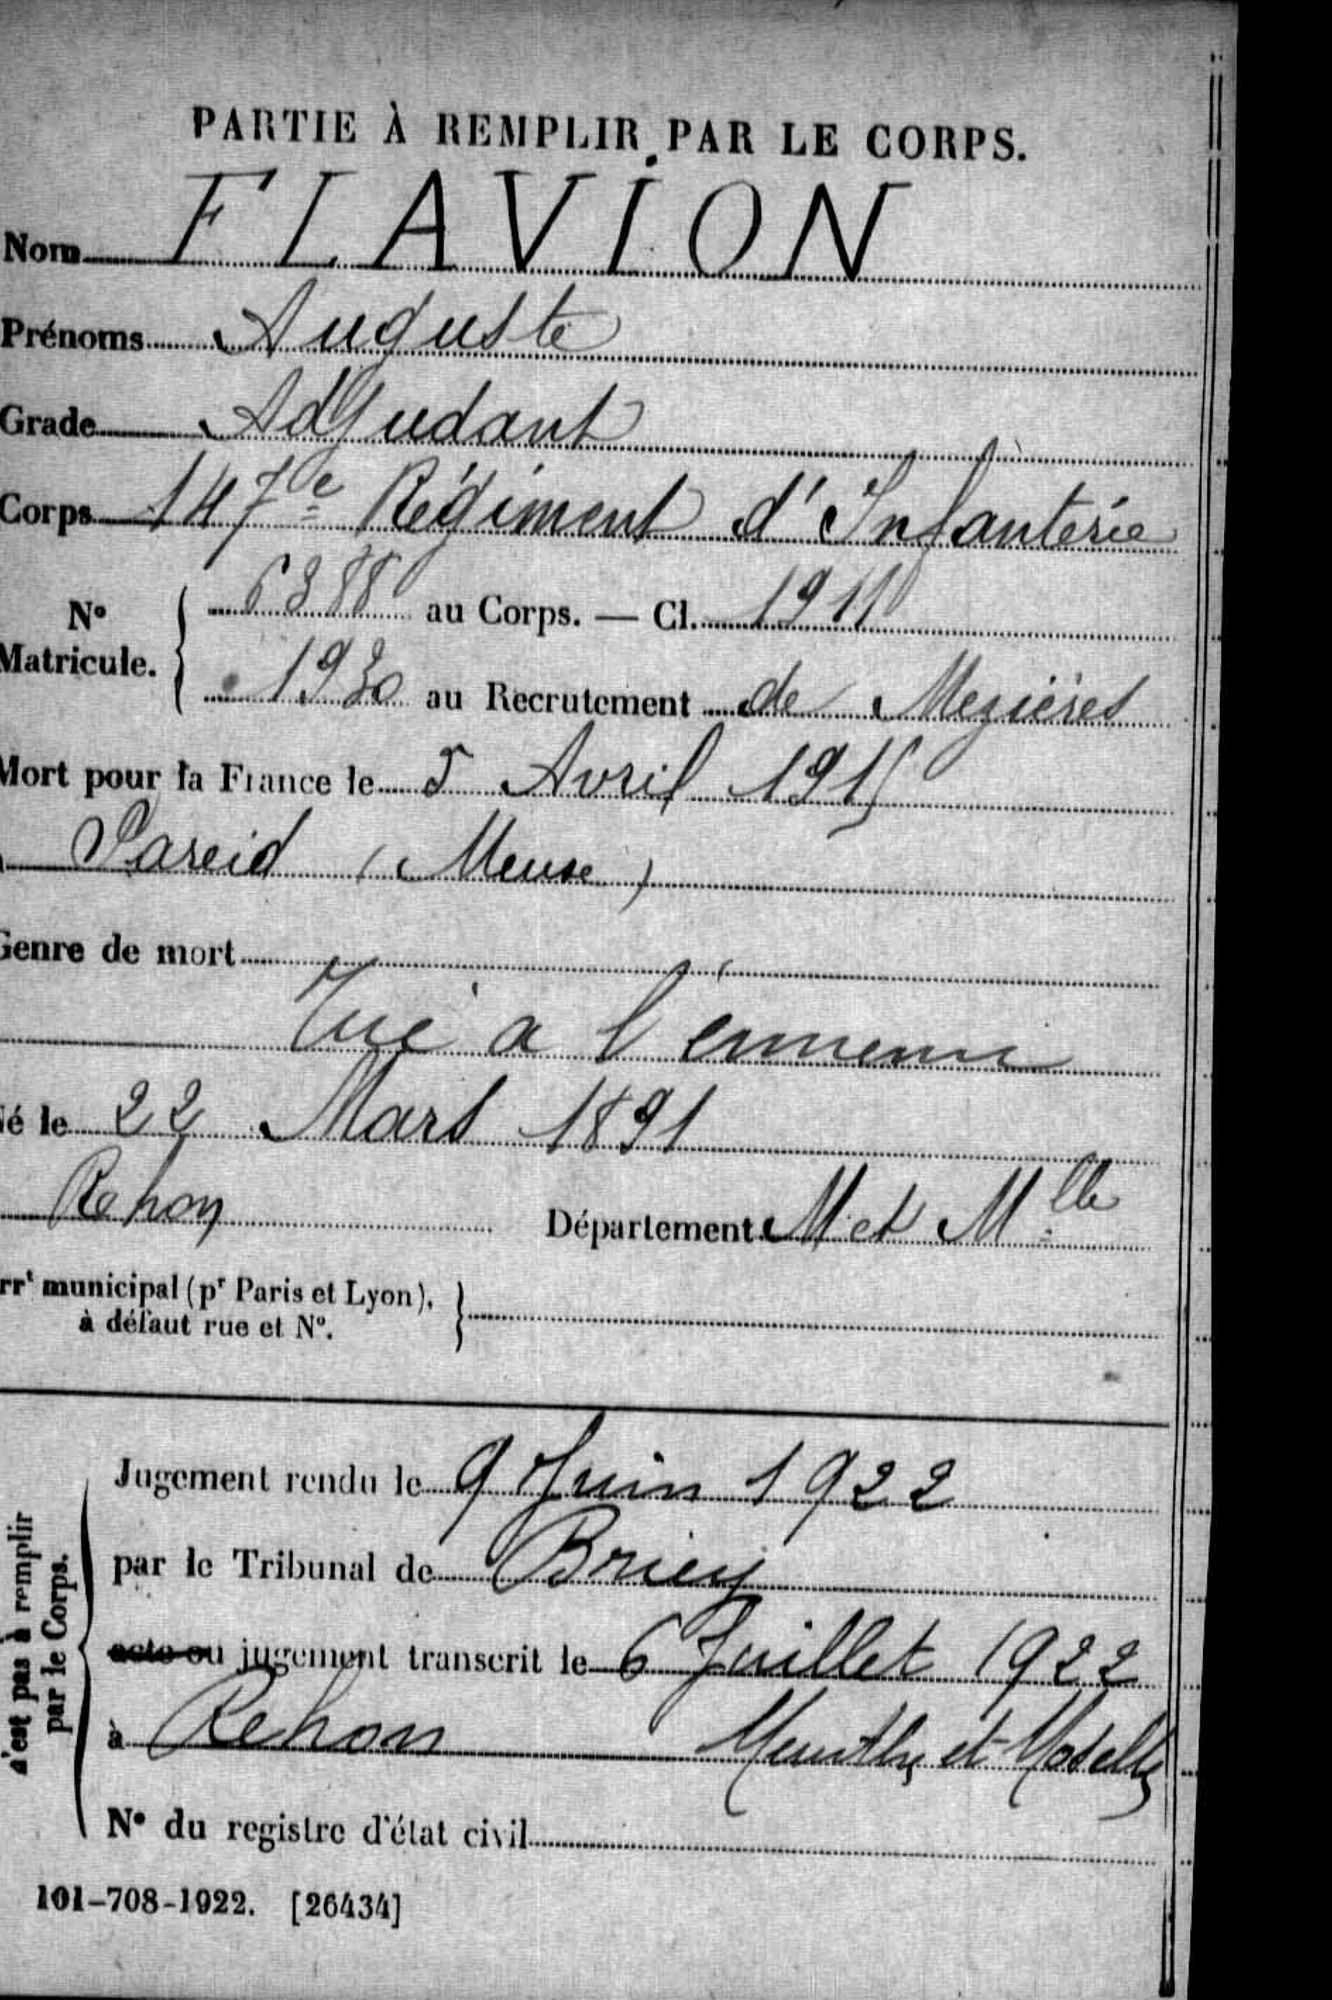 PARTIE À REMPLIR PAR LE CORPS.
Nom FLAVION
Prénoms Auguste
Grade Adjudant
Corps 147e Régiment d'Infanterie
N° Matricule. { 6388 au Corps. — Cl. 1911
1930 au Recrutement de Mezières
Mort pour la France le 5 Avril 1915
Pareid (Meuse)
Genre de mort
Tué à l'ennemi
Né le 22 Mars 1891
Rehon Département M et Mlle
rrt municipal (pr Paris et Lyon), à défaut rue et N°. }
n'est pas à remplir par le Corps.
Jugement rendu le 9 Juin 1922
par le Tribunal de Briey
acte ou jugement transcrit le 6 Juillet 1922
à Rehon Meurthe et Moselle
N° du registre d'état civil
101-708-1922. [26434]